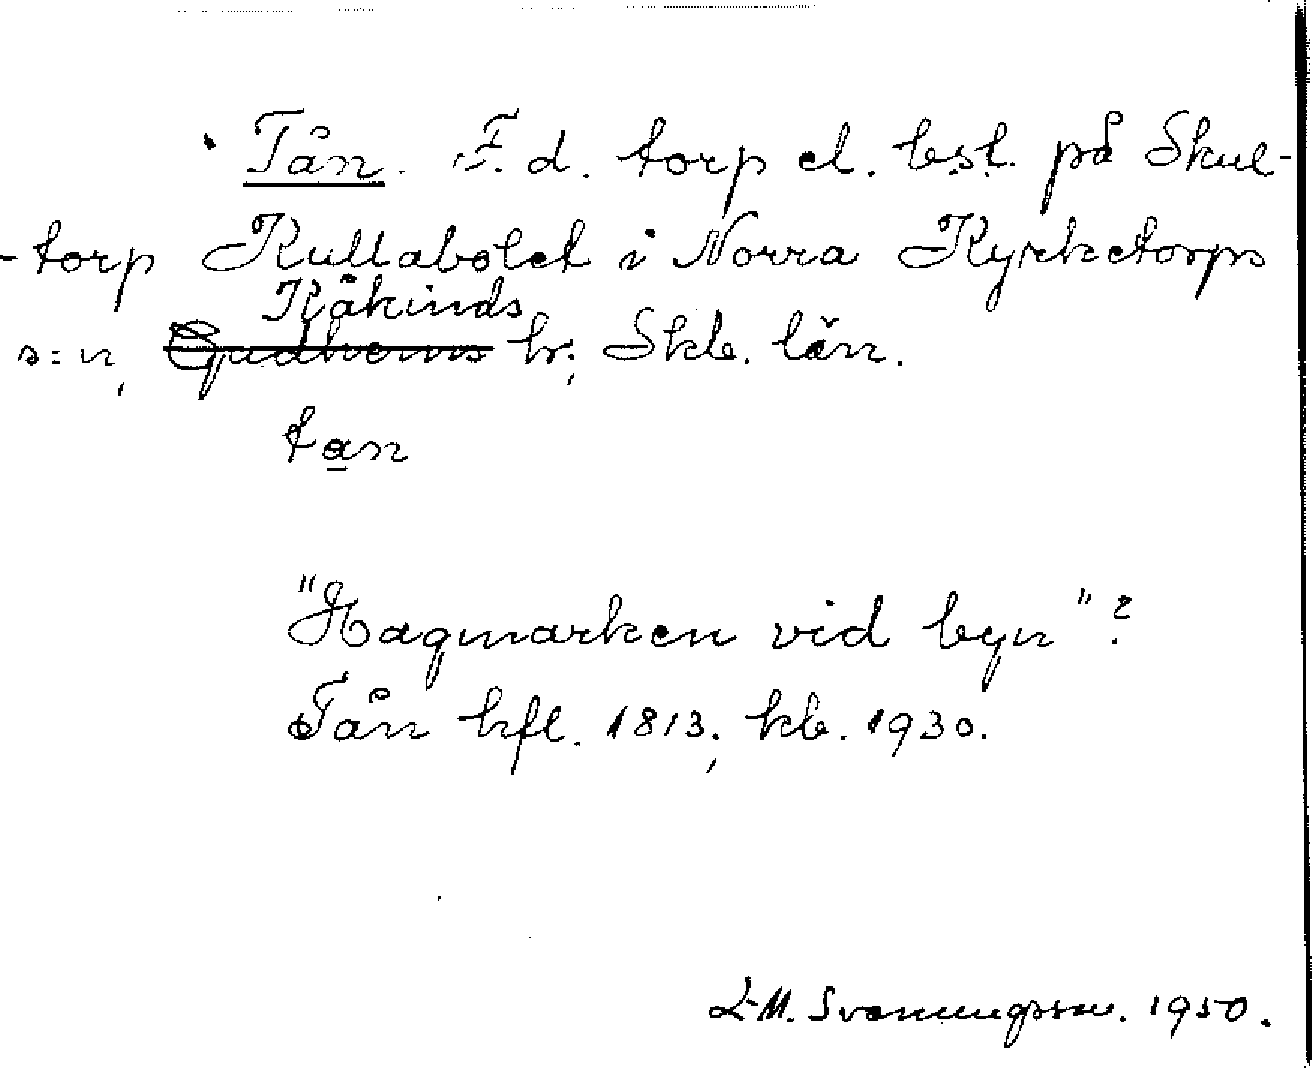 Tån. F.d. torp el. bst. på Skul-
-torp Kullabolet i Norra Kyrketorps
Kåkinds
s:n, Gudhems hr; Skb. län.
tan
"Hagmarken vid byn"?
Tån hfl. 1813; kb. 1930.
L-M. Svanungsson. 1950.